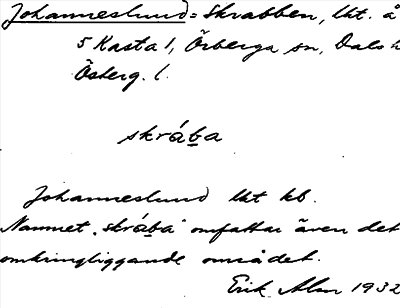 Johanneslund = Skrabben, lht. å
5 Kasta 1, Örberga sn, Dals h
Österg. l.
skráb̲a
Johanneslund lht kb.
Namnet „skráb̲a" omfattar även det
omkringliggande området.
Erik Alm 1932